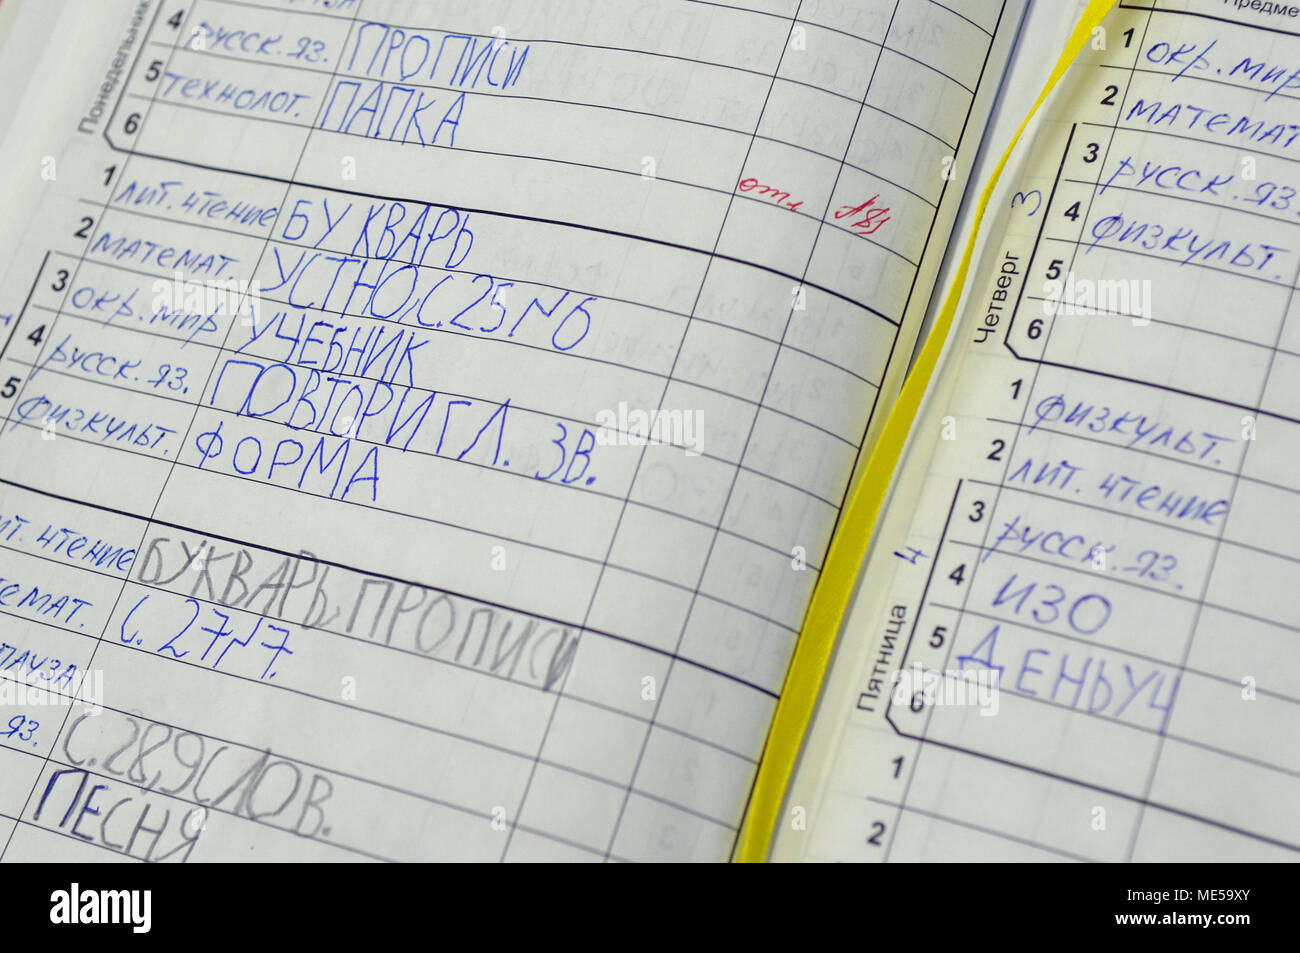 Понедельник
4 русск. яз. ПРОПИСИ
5 технолог. ПАПКА
6
отл
1 лит. чтение БУКВАРЬ
2 математ. УСТНО,С.25 №6
3 окр. мир УЧЕБНИК
4 русск. яз. ПОВТОРИ ГЛ. ЗВ.
5 физкульт. ФОРМА
чтение БУКВАРЬ, ПРОПИСИ
С. 27 №7.
яз. С.28,9СЛОВ.
ПЕСНЯ
Четверг
3
1 окр. мир
2 математ
3 русск. яз.
4 физкульт.
5
6
Пятница
4
1 физкульт.
2 лит. чтение
3 русск. яз.
4 ИЗО
5 ДЕНЬУЧ
6
1
2
alamy
ME59XY
www.alamy.com